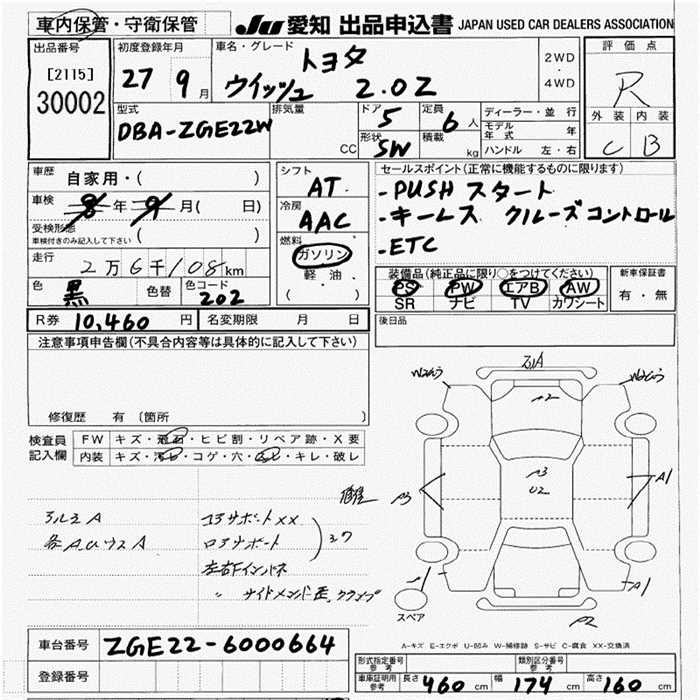 車内保管・守衛保管
JU 愛知 出品申込書 JAPAN USED CAR DEALERS ASSOCIATION
出品番号
[2115]
30002
初度登録年月
27 9月
車名・グレード
トヨタ
ウイッシュ 2.0Z
2WD
・
4WD
評価点
R
外装 内装
C B
型式
DBA-ZGE22W
排気量
CC
ドア 5
定員 6人
形状 SW
積載 kg
ディーラー・並行
モデル年式 年
ハンドル 左・右
車歴 自家用・( )
車検 8年9月( 日)
受検形態
車検付きのみ記入して下さい ( )
走行 2万6千108km
色 黒 色替 色コード 202
シフト
AT
冷房
AAC
燃料
ガソリン
軽油、
( )
セールスポイント(正常に機能するものに限ります)
・PUSH スタート
・キーレス クルーズコントロール
・ETC
装備品(純正品に限り○をつけてください)
PS PW エアB AW
SR ナビ TV カワシート
新車保証書
有・無
R券 10,460円 名変期限 月 日
後日品
注意事項申告欄(不具合内容等は具体的に記入して下さい)
修復歴 有 (箇所
検査員記入欄
FW キズ・飛石・ヒビ割・リペア跡・X要
内装 キズ・汚れ・コゲ・穴・・キレ・破レ
A2
A3
U2
A3
A1
A1
P2
アルミA
コアサポートXX
ロアサポート
左右Fインパネ
スペア
A-キズ E-エクボ U-凹み W-補修跡 S-サビ C-腐食 XX-交換済
車台番号 ZGE22-6000664
登録番号
形式指定番号 参考
類別区分番号 参考
車庫証明用 参考
長さ 460cm 幅 174cm 高さ 160cm